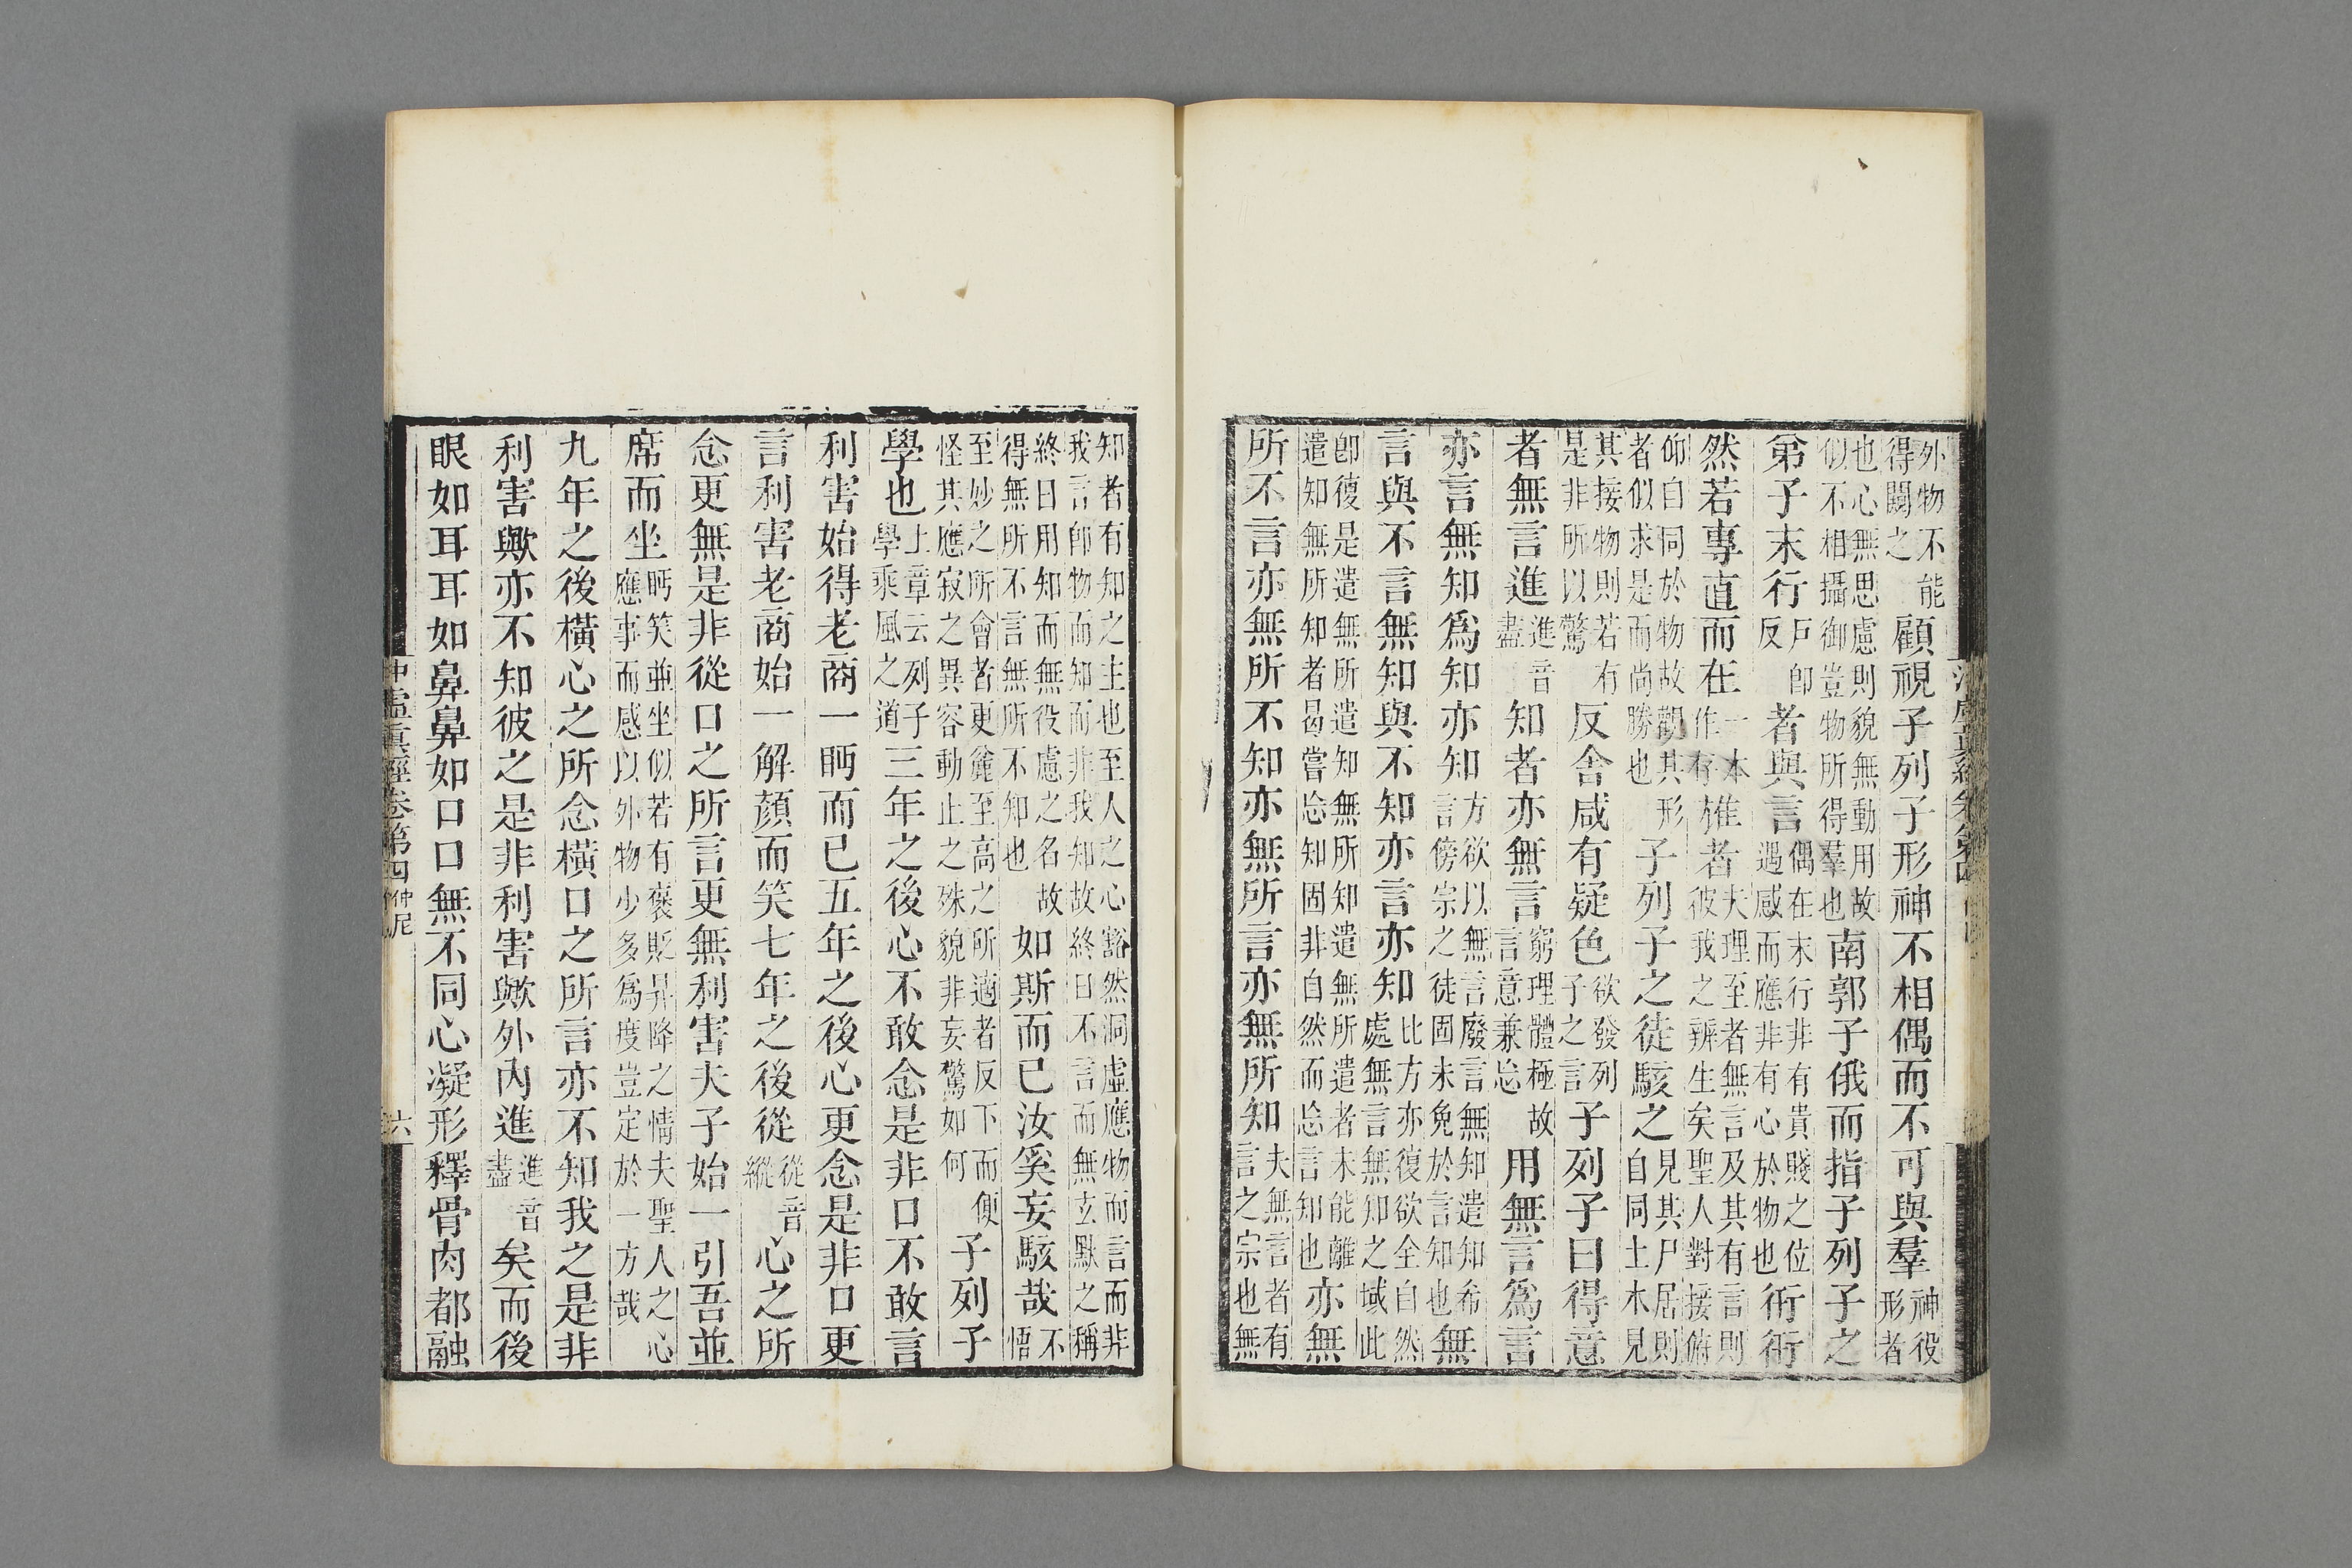 外物不能得闚之顧視子列子形神不相偶而不可與羣神役形者
也心無思慮則貌無動用故似不相攝御豈物所得羣也南郭子俄而指子列子之
弟子末行戸郎反者與言偶在末行非有貴賤之位遇感而應非有心於物也衎衎
然若專直而在一本作存雄者夫理至者無言及其有言則彼我之辨生矣聖人對接俯
仰自同於物故觀其形者似求是而尚勝也子列子之徒駭之見其尸居則自同土木見
其接物則若有是非所以驚反舍咸有疑色欲發列子之言子列子曰得意
者無言進進音盡知者亦無言窮理體極故言意兼忘用無言爲言
亦言無知爲知亦知方欲以無言廢言無知遣知希言傍宗之徒固未免於言知也無
言與不言無知與不知亦言亦知比方亦復欲全自然處無言無知之域此
卽復是遣無所遣知無所知遣無所遣者未能離遣知無所知者曷嘗忘知固非自然而忘言知也亦無
所不言亦無所不知亦無所言亦無所知夫無言者有言之宗也無
知者有知之主也至人之心豁然洞虛應物而言而非我言卽物而知而非我知故終日不言而無玄默之稱
終日用知而無役慮之名故得無所不言無所不知也如斯而已汝奚妄駭哉不悟
至妙之所會者更麄至高之所適者反下而便怪其應寂之異容動止之殊貌非妄驚如何子列子
學也上章云列子學乘風之道三年之後心不敢念是非口不敢言
利害始得老商一眄而已五年之後心更念是非口更
言利害老商始一解顏而笑七年之後從從音縱心之所
念更無是非從口之所言更無利害夫子始一引吾並
席而坐眄笑並坐似若有褒貶昇降之情夫聖人之心應事而感以外物少多爲度豈定於一方哉
九年之後橫心之所念橫口之所言亦不知我之是非
利害歟亦不知彼之是非利害歟外內進進音盡矣而後
眼如耳耳如鼻鼻如口口無不同心凝形釋骨肉都融
沖虛眞經卷第四仲尼 六